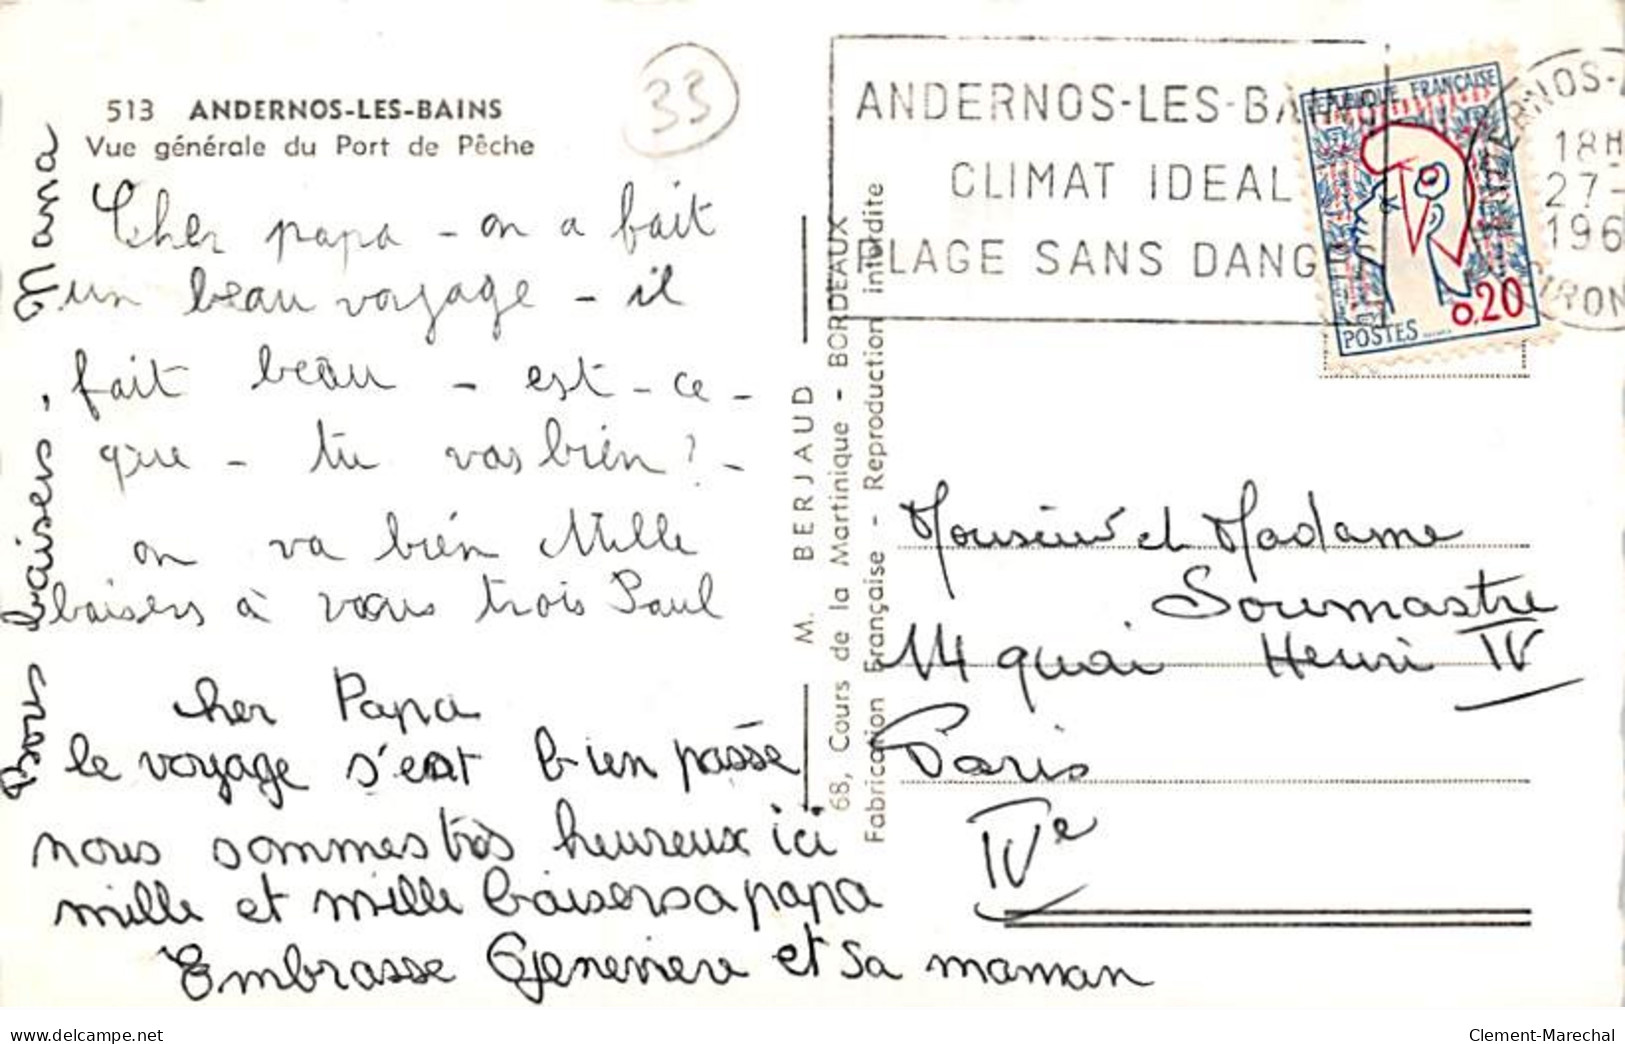 513 ANDERNOS-LES-BAINS
Vue générale du Port de Pêche
33
Cher papa - on a fait
un beau voyage - il
fait beau - est-ce-
que - tu vas bien? -
on va bien Mille
baisers à vous trois Paul
cher Papa
le voyage s'est bien passé
nous sommes très heureux ici
mille et mille baisers a papa
Embrasse Genevieve et sa maman
Bons baisers. Nana
M. BERJAUD
68, Cours de la Martinique - BORDEAUX
Fabrication Française - Reproduction interdite
ANDERNOS-LES-BA
CLIMAT IDEAL
PLAGE SANS DANG
REPUBLIQUE FRANÇAISE
0,20
POSTES
18H
27-
196
Monsieur et Madame
Soumastre
14 quai Henri IV
Paris
IVe
delcampe.net
Clement-Marechal